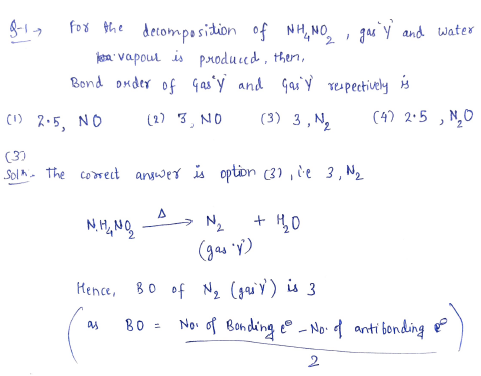 Q-1 → For the decomposition of NH₄NO₂, gas 'Y' and water
vapour is produced, then,
Bond order of Gas 'Y' and Gas 'Y' respectively is
(1) 2.5, NO (2) 3, NO (3) 3, N₂ (4) 2.5, N₂O
(3)
Solⁿ- The correct answer is option (3), i.e 3, N₂
N.H₄NO₂ —Δ→ N₂ + H₂O
(gas 'Y')
Hence, BO of N₂ (gas 'Y') is 3
( as BO = No. of Bonding e⁻ - No. of antibonding e⁻ )
2